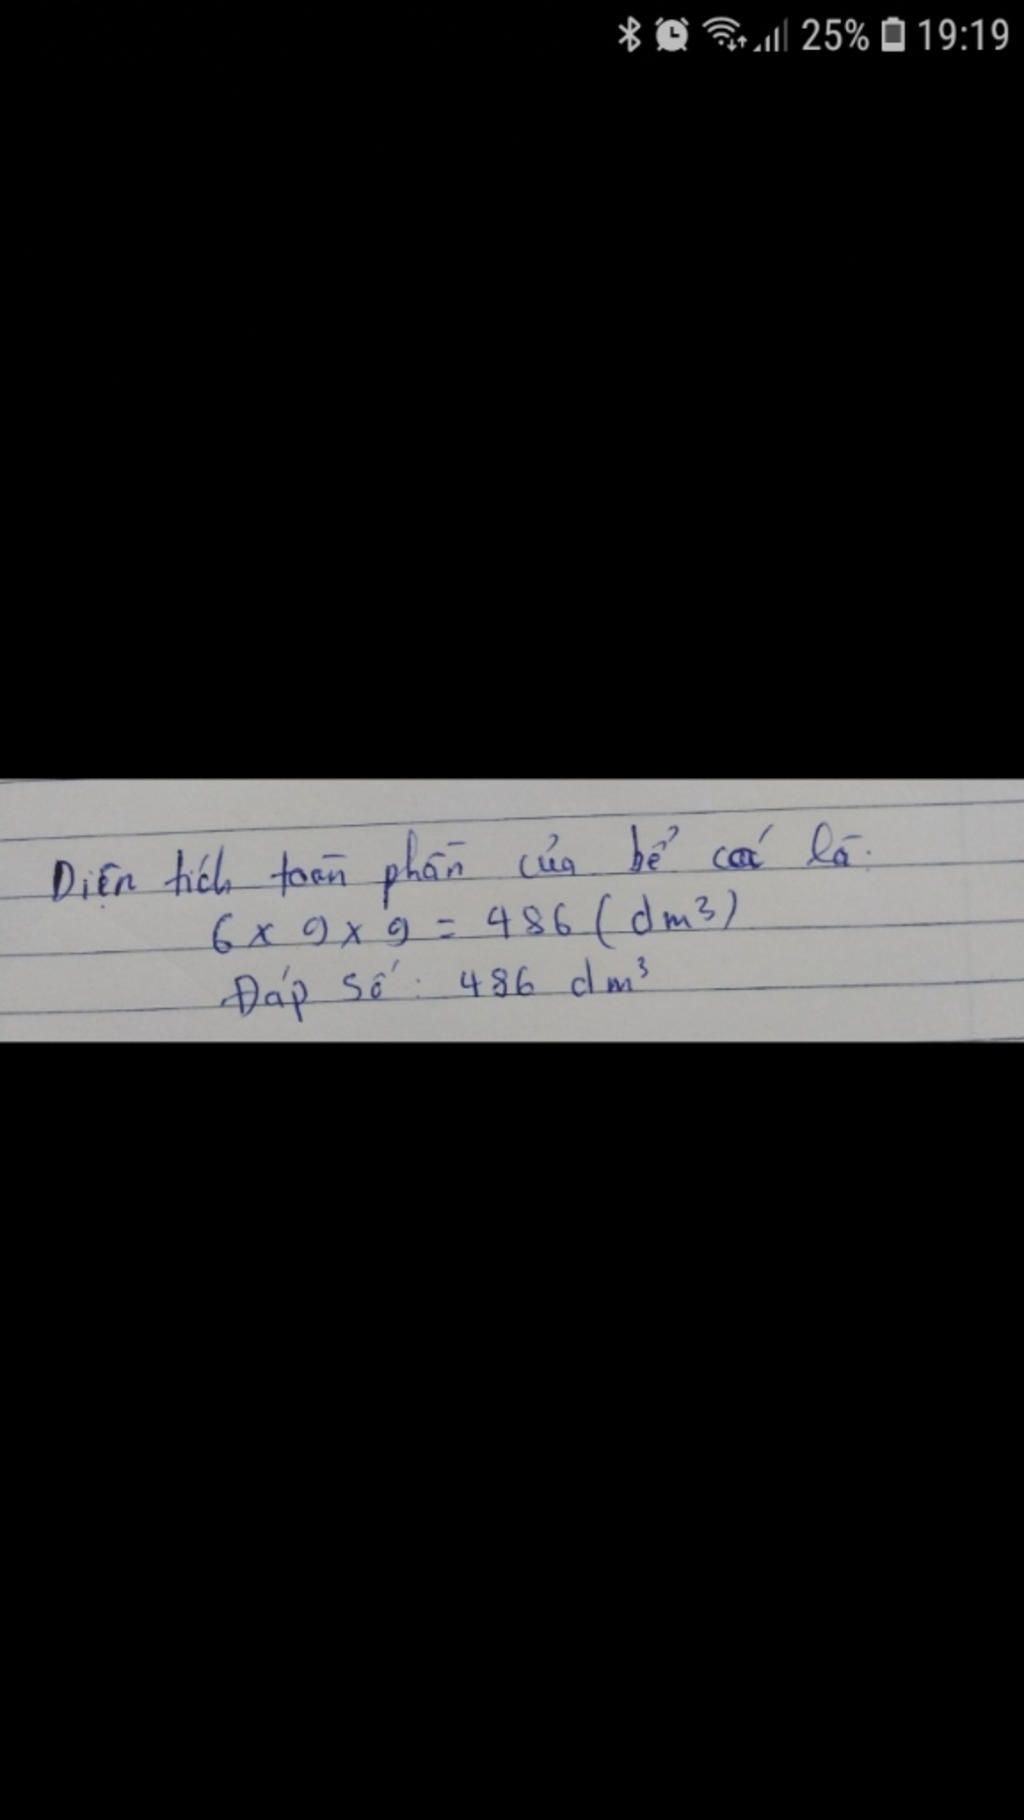 25% 19:19
Diện tích toàn phần của bể cá là:
6 x 9 x 9 = 486 (dm³)
Đáp số: 486 dm³